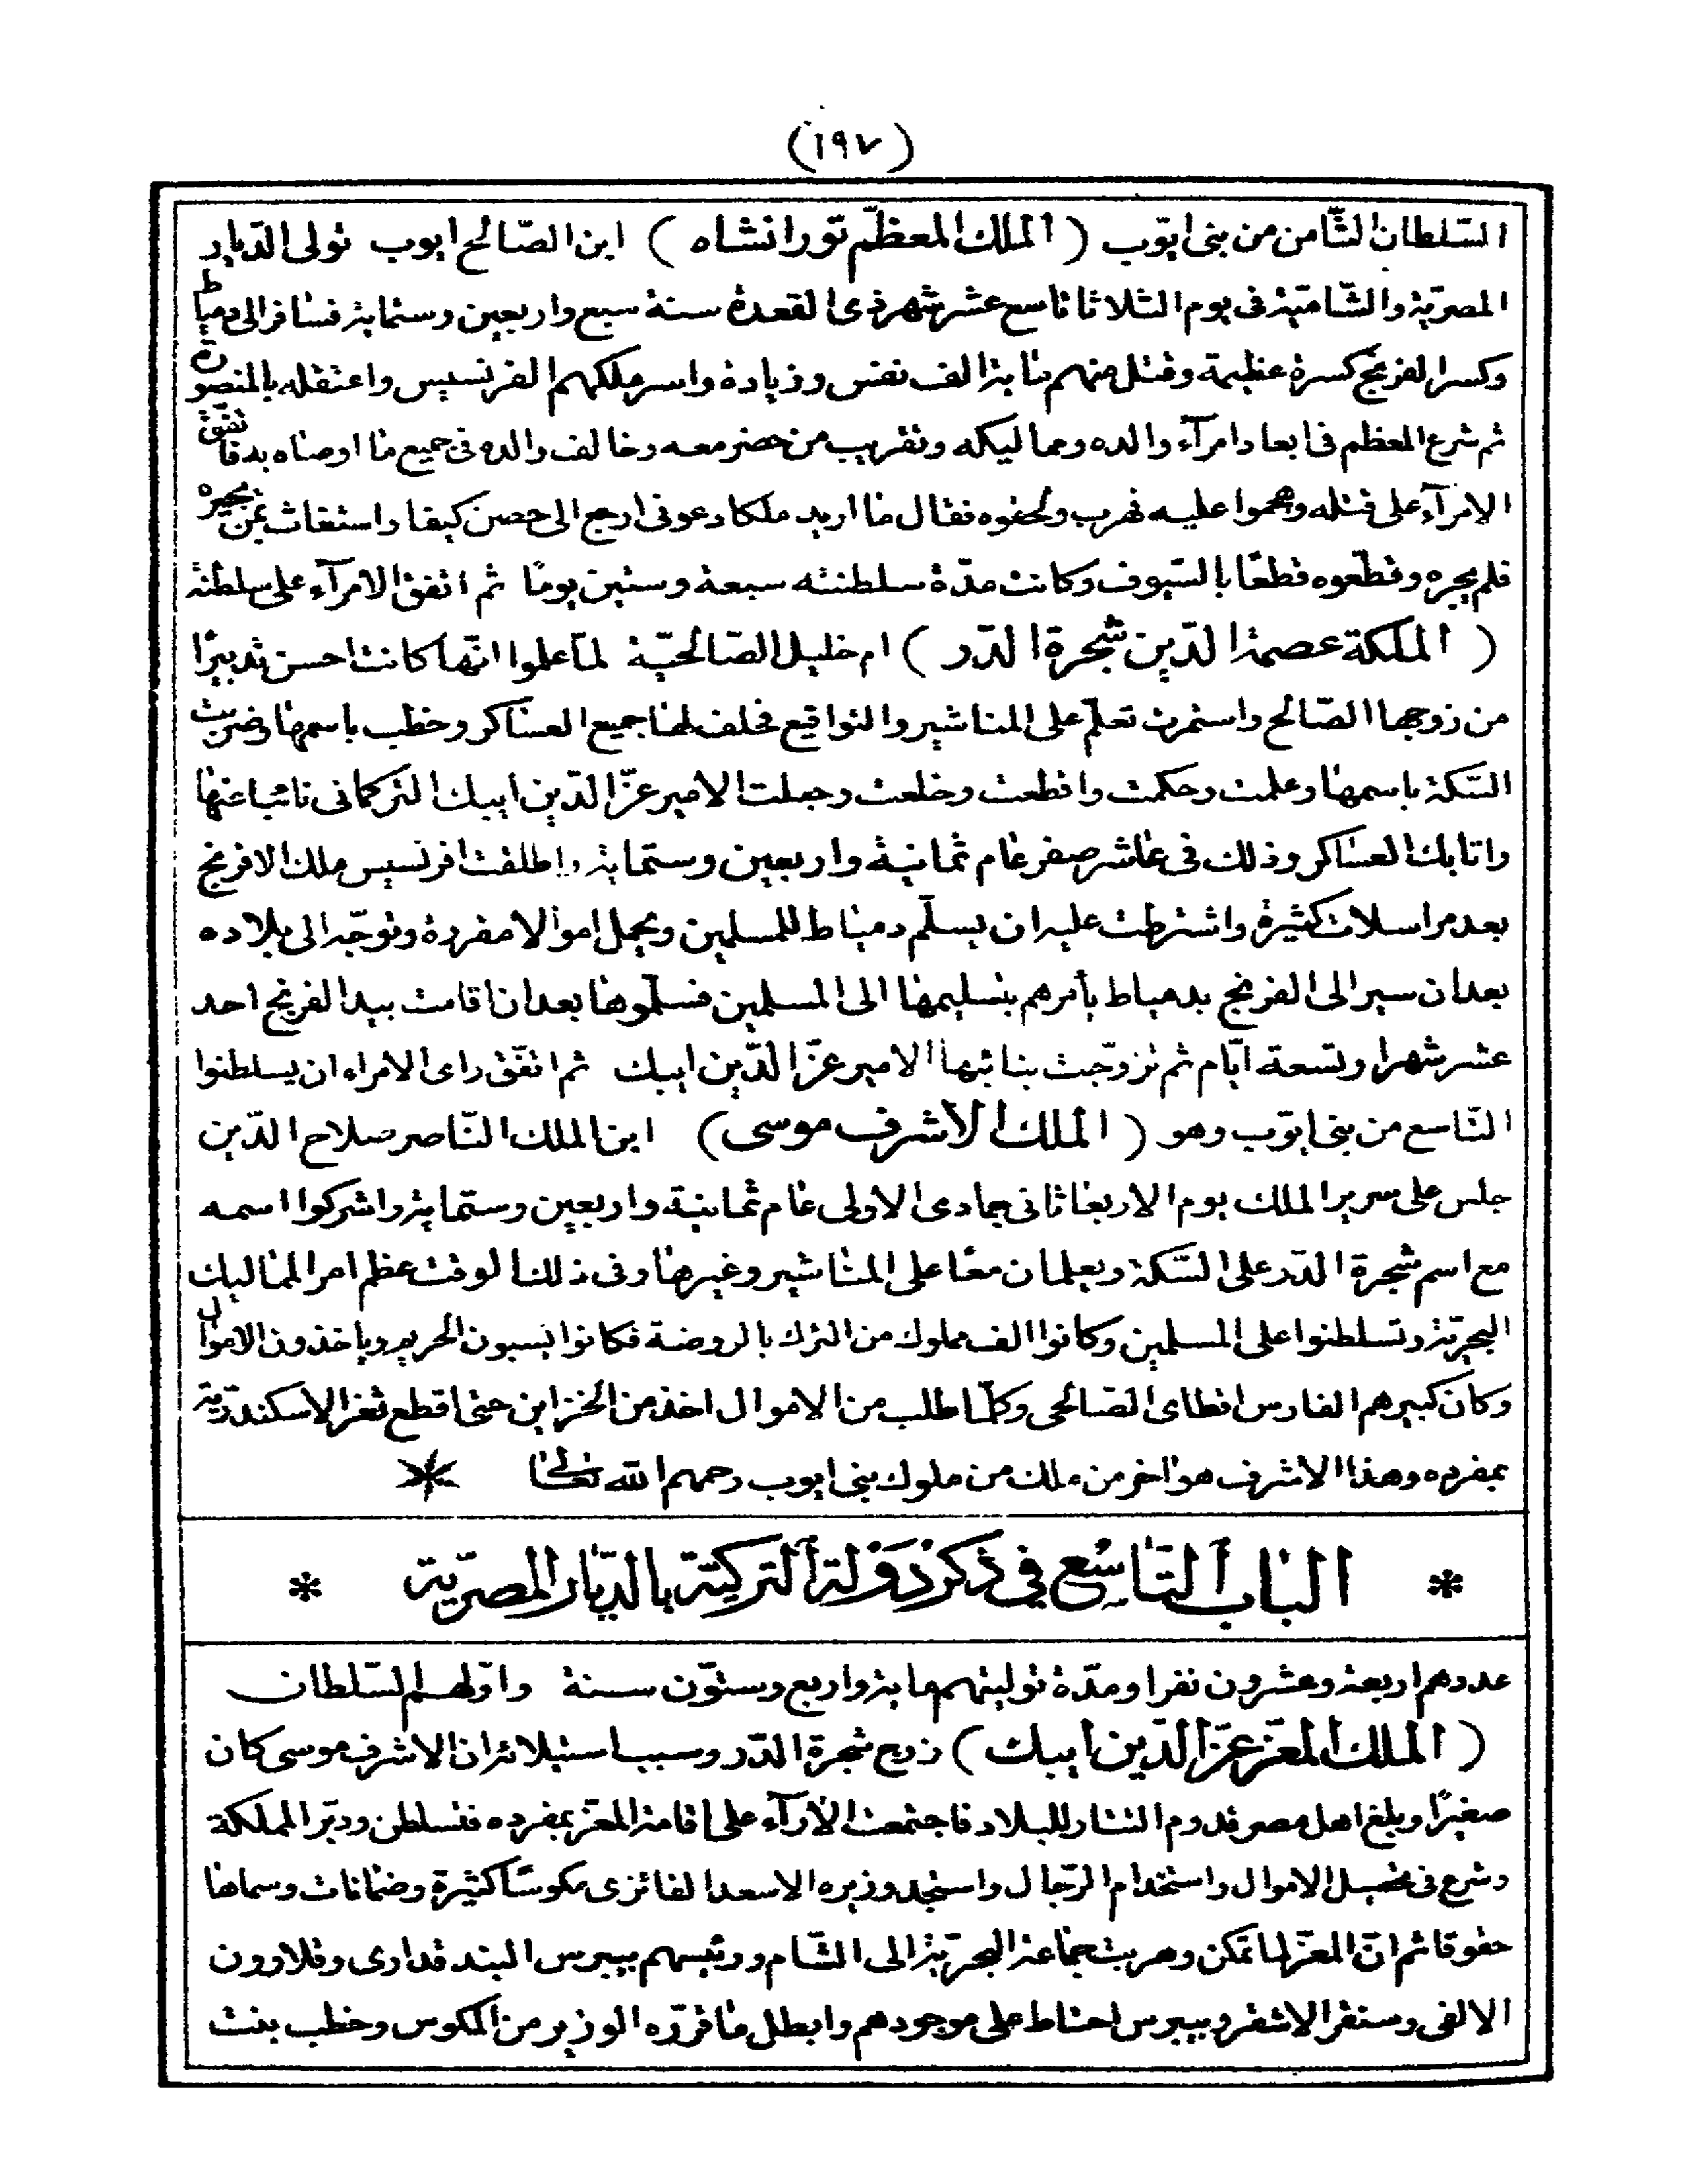 (١٩٧)
السّلطان الثّامن من بنى ايّوب (الملك المعظّم تورانشاه) ابن الصّالح ايوب تولى الدّيار
المصريّة والشّاميّة فى يوم الثلاثا تاسع عشر شهر ذى القعدة سنة سبع واربعين وستماية فسافر الى دمياط
وكسر الفرنج كسرة عظيمة وقتل منهم ماية الف نفس وزيادة واسر ملكهم الفرنسيس واعتقله بالمنصورة
ثم شرع المعظم فى ابعاد امرآء والده ومماليكه وتقريب من حضر معه وخالف والده فى جميع ما اوصاه به فاتّفق
الامرآء على قتله وهجموا عليه فهرب ولحقوه فقال ما اريد ملكا دعونى ارجع الى حصن كيفا واستغاث بمن يجيره
فلم يجره وقطّعوه قطعًا بالسّيوف وكانت مدّة سلطنته سبعة وستين يومًا ثم اتفق الامرآء على سلطنة
(الملكة عصمة الدّين شجرة الدّر) ام خليل الصّالحيّة لمّا علموا انّها كانت احسن تدبيرًا
من زوجها الصّالح واستمرت تعلّم على المناشير والتواقيع فحلف لها جميع العساكر وخطب باسمها وضربت
السّكة باسمها وعلمت وحكمت واقطعت وخلعت وجعلت الامير عزّ الدّين ايبك التركمانى نائبا عنها
واتابك العساكر وذلك فى عاشر صفر عام ثمانية واربعين وستماية واطلقت افرنسيس ملك الافرنج
بعد مراسلات كثيرة واشترطت عليه ان يسلّم دمياط للمسلمين ويحمل اموالا مقررة وتوجّه الى بلاده
بعد ان سير الى الفرنج بدمياط يأمرهم بتسليمها الى المسلمين فسلّموها بعد ان اقامت بيد الفرنج احد
عشر شهرا وتسعة ايّام ثم تزوّجت بنائبها الامير عزّ الدّين ايبك ثم اتّفق راى الامراء ان يسلطنوا
التّاسع من بنى ايّوب وهو (الملك الاشرف موسى) ابن الملك النّاصر صلاح الدّين
جلس على سرير الملك يوم الاربعا ثانى جمادى الاولى عام ثمانية واربعين وستماية واشركوا اسمه
مع اسم شجرة الدّر على السّكة ويعلمان معًا على المناشير وغيرها وفى ذلك الوقت عظم امر المماليك
البحريّة وتسلطنوا على المسلمين وكانوا الف مملوك من الترك بالروضة فكانوا يسبون الحريم وياخذون الاموال
وكان كبيرهم الفارس اقطاى الصّالحى وكلّما طلب من الاموال اخذ من الخزاين حتى اقطع ثغر الاسكندريّة
بمفرده وهذا الاشرف هو اخر من ملك من ملوك بنى ايوب رحمهم الله تعالى *
* الباب التاسع في ذكر دولة التركيّة بالديار المصريّة *
عددهم اربعة وعشرون نفرا ومدّة توليتهم ماية واربع وستّون سنة واوّلهم السّلطان
(الملك المعزّ عزّ الدّين ايبك) زوج شجرة الدّر وسبب استيلائه ان الاشرف موسى كان
صغيرًا وبلغ اهل مصر قدوم التتار للبلاد فاجتمعت الأرآء على اقامة المعزّ بمفرده فتسلطن ودبّر المملكة
وشرع فى تحصيل الاموال واستخدام الرّجال واستجد وزيره الاسعد الفائزى مكوسًا كثيرة وضمانات وسماها
حقوقا ثم انّ المعزّ لما تمكن وهربت جماعة البحريّة الى الشّام ورئيسهم بيبرس البندقدارى وقلاوون
الالفى وسنقر الاشقر وبيبرس احتاط على موجودهم وابطل ما قرّره الوزير من المكوس وخطب بنت